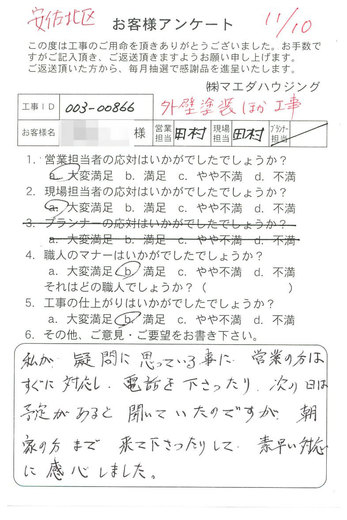 安佐北区
11/10
お客様アンケート
この度は工事のご用命を頂きありがとうございました。お手数で
すがご記入頂き、ご返送頂きますようお願い申し上げます。
ご返送頂いた方から、毎月抽選で感謝品を進呈いたします。
㈱マエダハウジング
工事ID 003-00866 外壁塗装ほか工事
お客様名 様 営業担当 田村 現場担当 田村 プランナー担当
1. 営業担当者の応対はいかがでしたでしょうか？
a. 大変満足 b. 満足 c. やや不満 d. 不満
2. 現場担当者の応対はいかがでしたでしょうか？
a. 大変満足 b. 満足 c. やや不満 d. 不満
3. プランナーの応対はいかがでしたでしょうか？
a. 大変満足 b. 満足 c. やや不満 d. 不満
4. 職人のマナーはいかがでしたでしょうか？
a. 大変満足 b. 満足 c. やや不満 d. 不満
それはどの職人でしょうか？（
5. 工事の仕上がりはいかがでしたでしょうか？
a. 大変満足 b. 満足 c. やや不満 d. 不満
6. その他、ご意見・ご要望をお書き下さい。
私が、疑問に思っている事に、営業の方は
すぐに対応し、電話を下さったり、次の日は
予定があると聞いていたのですが、朝
家の方まで来て下さったりして、素早い対応
に感心しました。